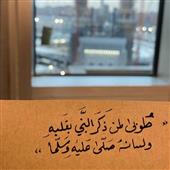 « طُوبىٰ لمن ذَكَرَ النَّبي بقَلبِهِ
ولسانهُ صَلّىٰ عَليْهِ وَسَلَّمَا ،،